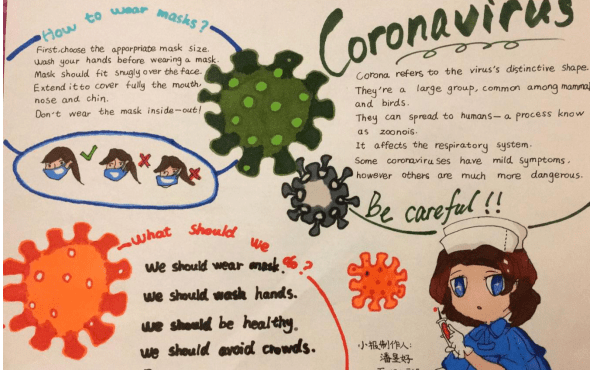 How to wear masks?
First, choose the apporpriate mask size.
Wash your hands before wearing a mask.
Mask should fit snugly over the face.
Extend it to cover fully the mouth,
nose and chin.
Don't wear the mask inside-out!
Coronavirus
Corona refers to the virus's distinctive shape.
They're a large group, common among mammals
and birds.
They can spread to humans—a process know
as zoonois.
It affects the respiratory system.
Some coronaviruses have mild symptoms,
however others are much more dangerous.
Be careful!!
What should we do?
We should wear mask.
We should wash hands.
We should be healthy.
We should avoid crowds.
小报制作人: